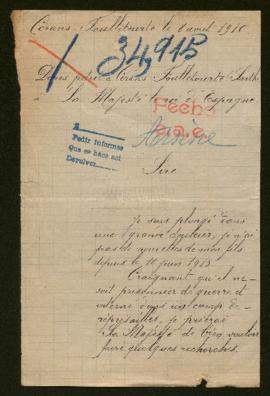 Cérans-Foulletourte le 6 avril 1916
34,915
Denis père à Cérans-Foulletourte Sarthe
à Sa Majesté le roi d'Espagne
Fecho
e.a.e.
A
Pedir informes
Que se hace así
Devolver
Sire
Je suis plongé dans
une grande douleur, je n'ai
pas de nouvelles de mon fils
depuis le 16 juin 1915
Craignant qu'il ne
soit prisonnier de guerre et
interné dans un camp de
représailles, je prierai
Sa Majesté de bien vouloir
faire quelques recherches.